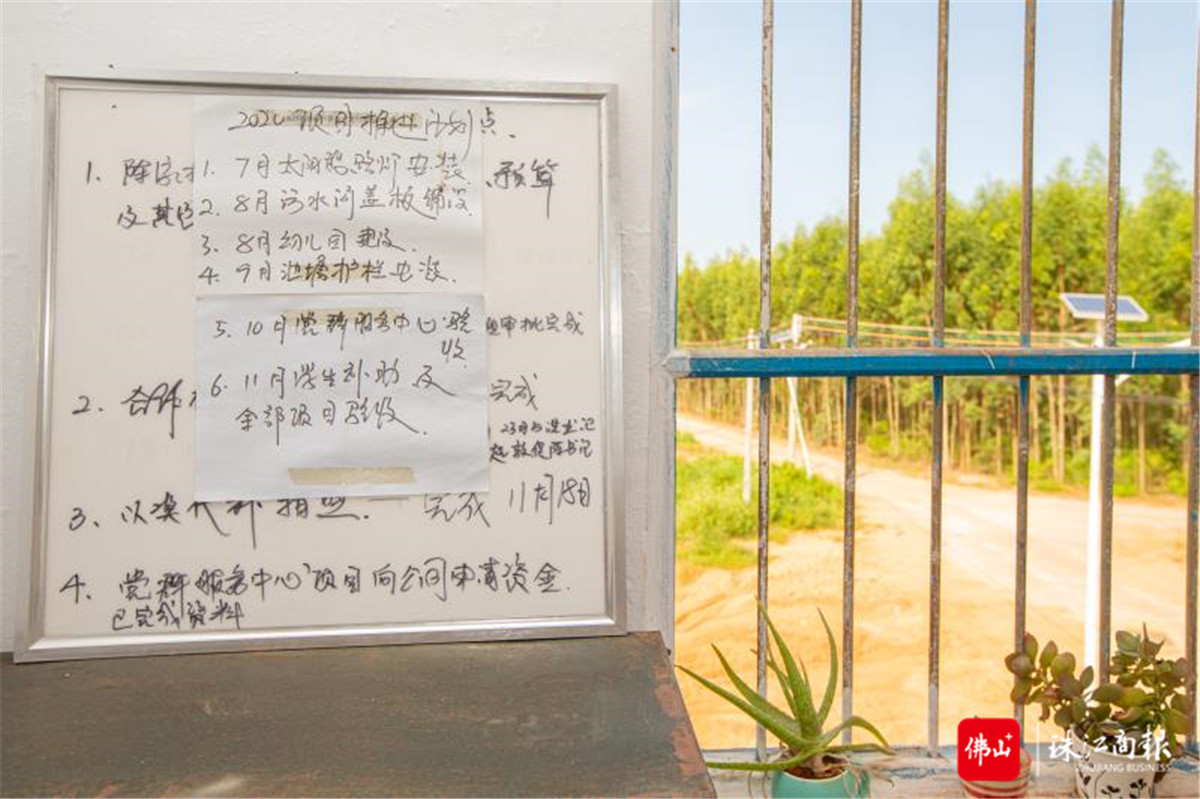 2020项目推进计划点.
1. 7月太阳能路灯安装
2. 8月污水沟盖板铺设
3. 8月幼儿园建设.
4. 9月池塘护栏安装.
5. 10月党群服务中心验收.
6. 11月学生补助及
全部项目验收.
1、陈
、预算
及其
审批完成
2、合作
完成
3、以奖代补
完成 11月18日
4、党群服务中心项目向公司申请资金.
已完成资料
佛山+
珠江商報
ZHUJIANG BUSINESS